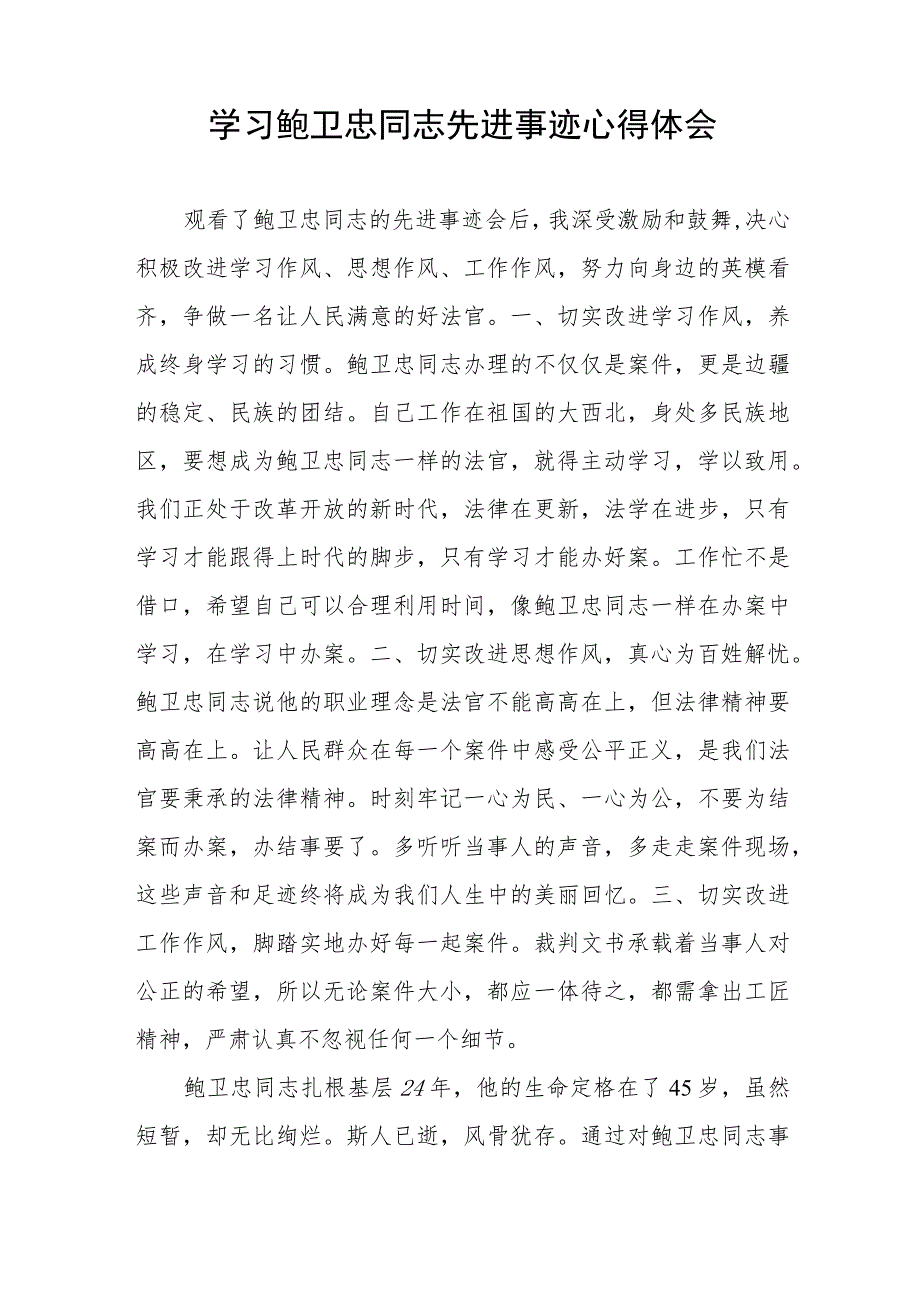 学习鲍卫忠同志先进事迹心得体会
观看了鲍卫忠同志的先进事迹会后，我深受激励和鼓舞,决心
积极改进学习作风、思想作风、工作作风，努力向身边的英模看
齐，争做一名让人民满意的好法官。一、切实改进学习作风，养
成终身学习的习惯。鲍卫忠同志办理的不仅仅是案件，更是边疆
的稳定、民族的团结。自己工作在祖国的大西北，身处多民族地
区，要想成为鲍卫忠同志一样的法官，就得主动学习，学以致用。
我们正处于改革开放的新时代，法律在更新，法学在进步，只有
学习才能跟得上时代的脚步，只有学习才能办好案。工作忙不是
借口，希望自己可以合理利用时间，像鲍卫忠同志一样在办案中
学习，在学习中办案。二、切实改进思想作风，真心为百姓解忧。
鲍卫忠同志说他的职业理念是法官不能高高在上，但法律精神要
高高在上。让人民群众在每一个案件中感受公平正义，是我们法
官要秉承的法律精神。时刻牢记一心为民、一心为公，不要为结
案而办案，办结事要了。多听听当事人的声音，多走走案件现场，
这些声音和足迹终将成为我们人生中的美丽回忆。三、切实改进
工作作风，脚踏实地办好每一起案件。裁判文书承载着当事人对
公正的希望，所以无论案件大小，都应一体待之，都需拿出工匠
精神，严肃认真不忽视任何一个细节。
鲍卫忠同志扎根基层24年，他的生命定格在了45岁，虽然
短暂，却无比绚烂。斯人已逝，风骨犹存。通过对鲍卫忠同志事